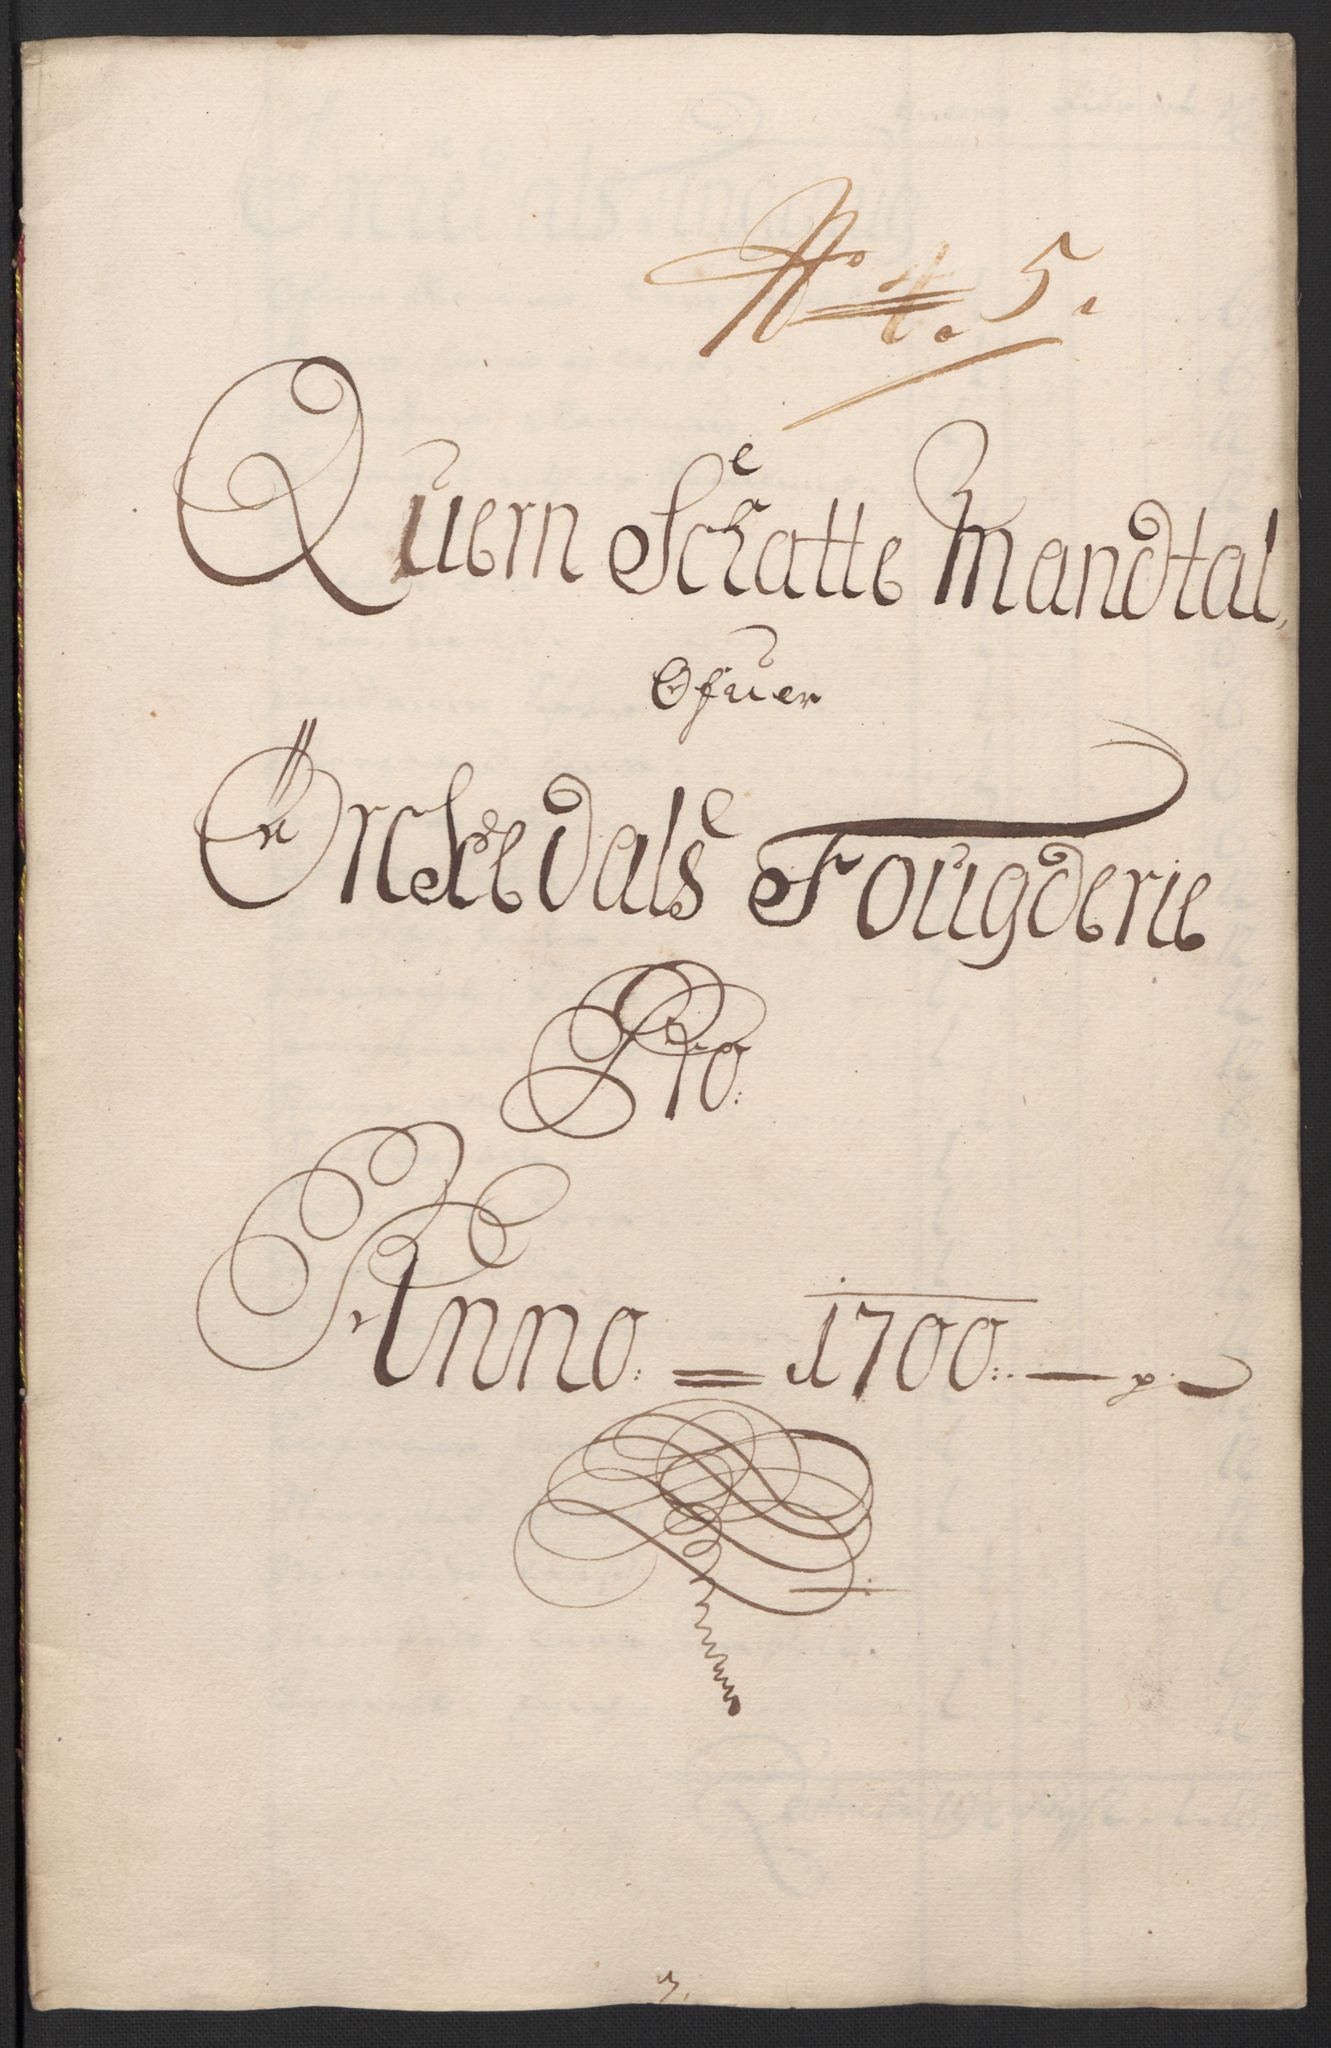 No 4. 5.
Quern Schatte Mandtal,
Ofuer
Örckedals Fougderie
Pro:
Anno: = 1700: